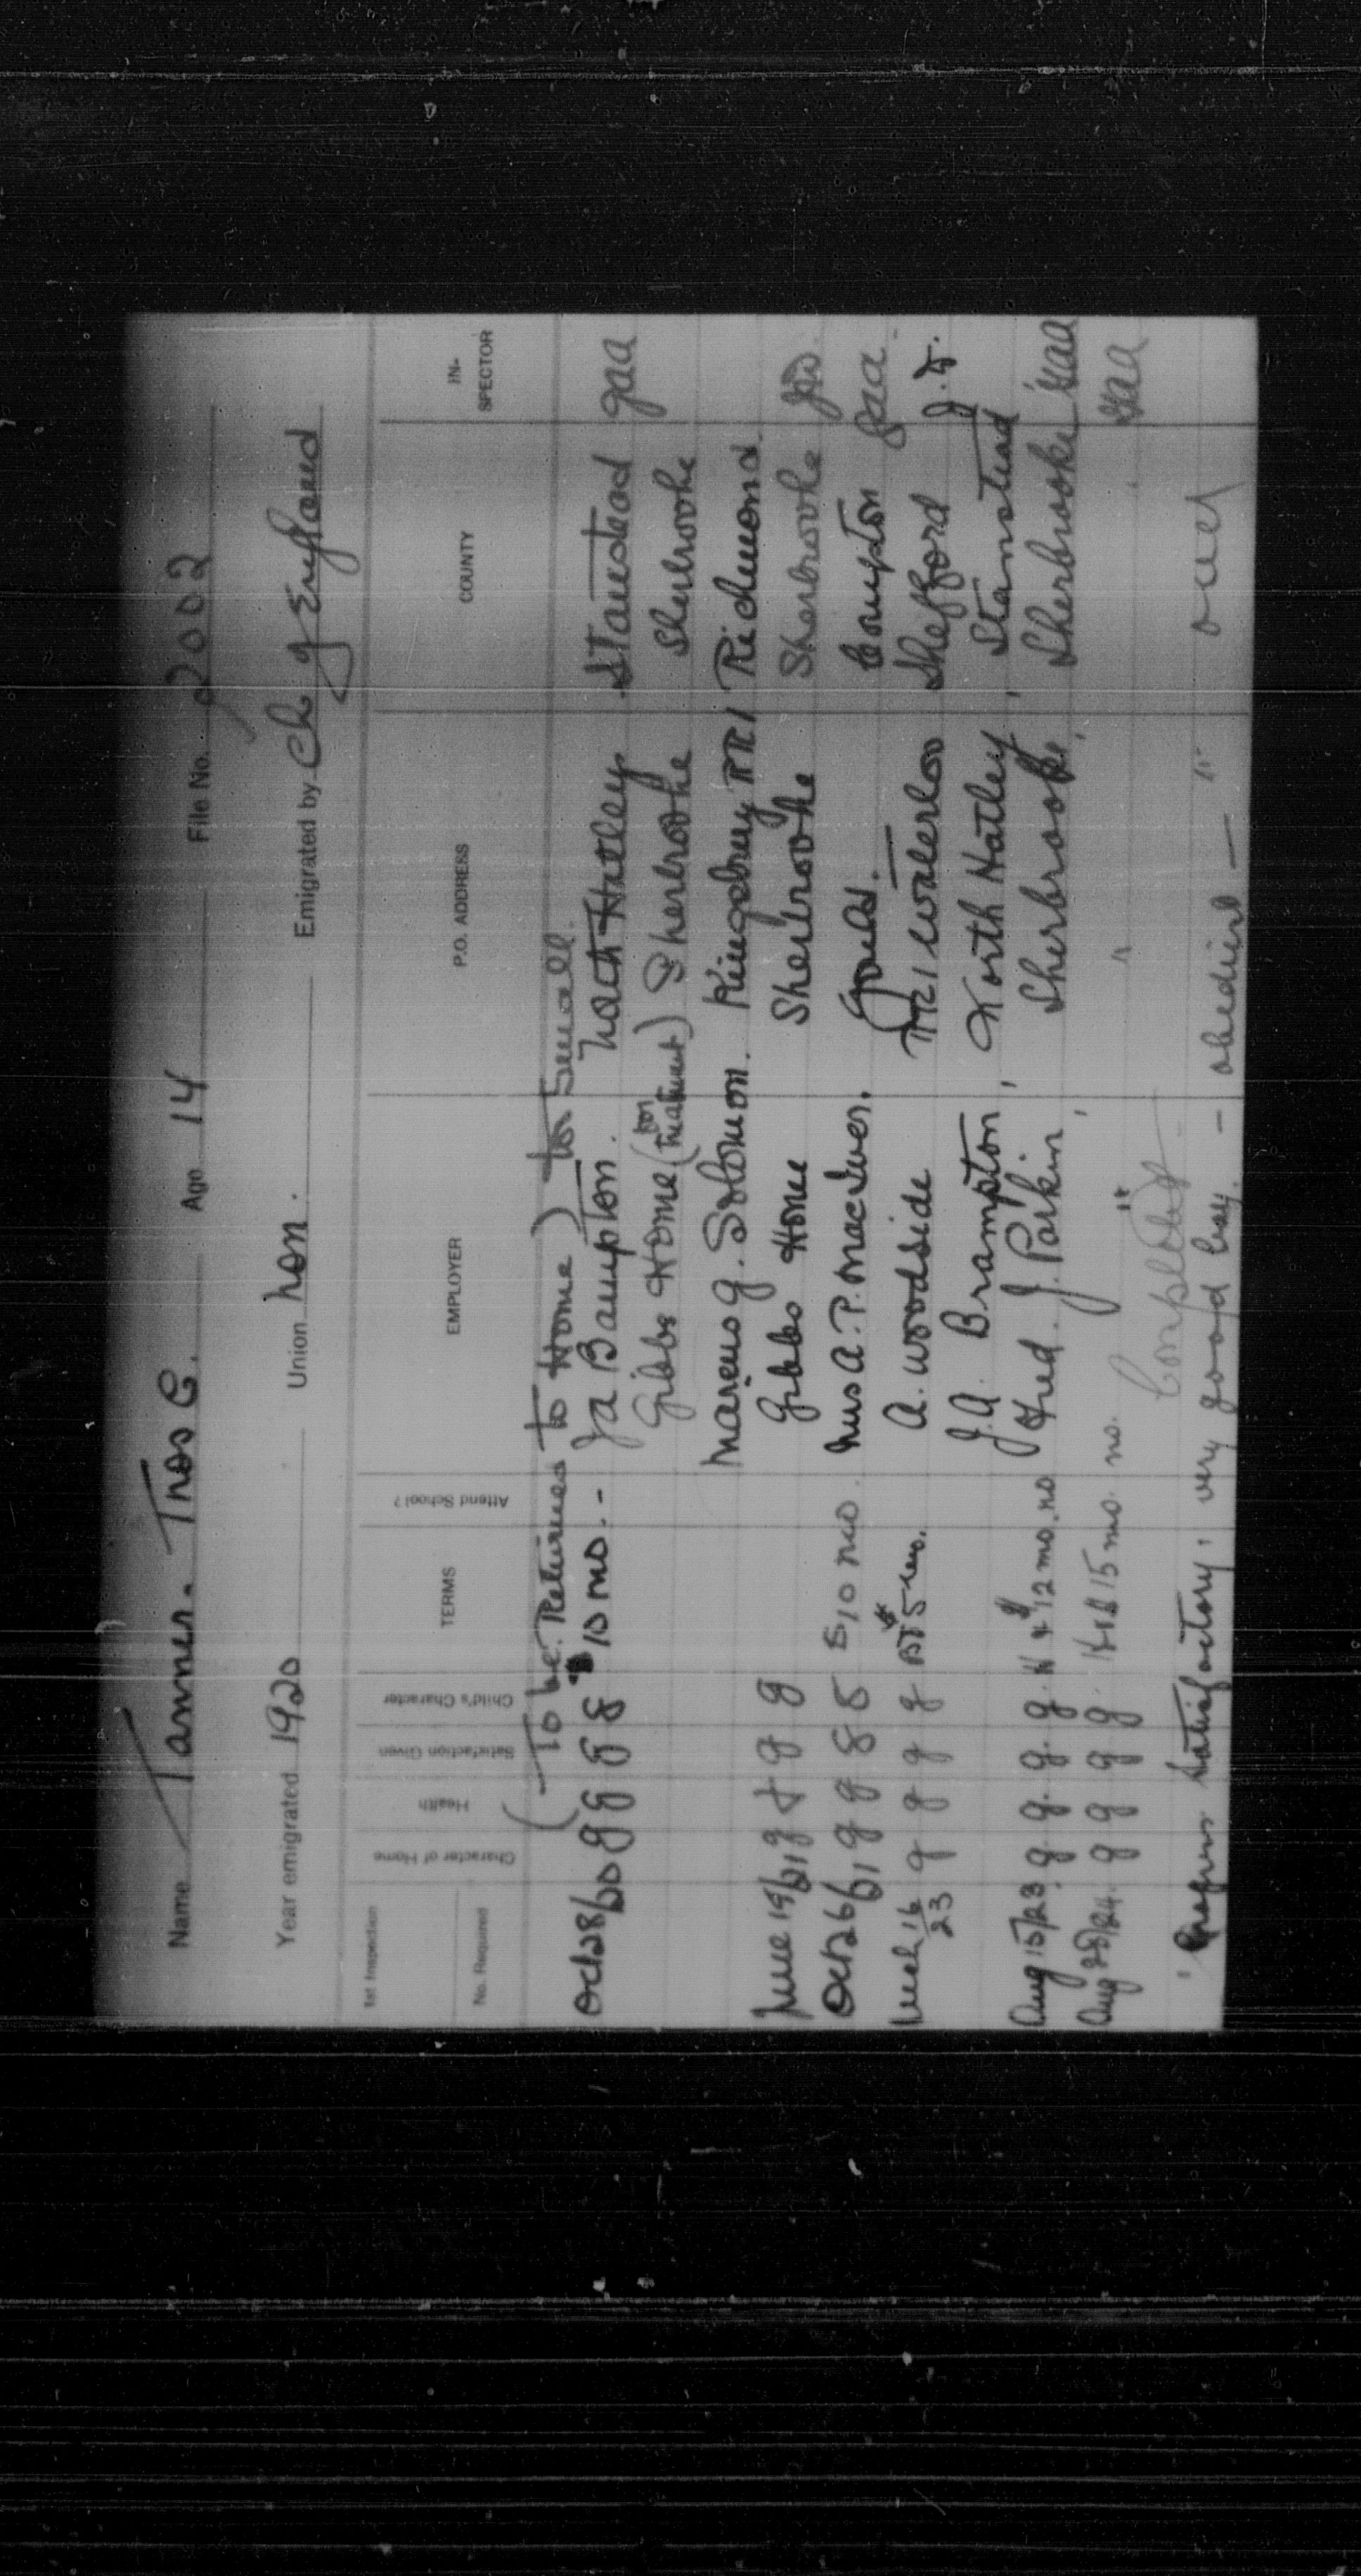 Name Tanner. Thos C. Age 14 File No. 2002
Year emigrated 1920 Union non. Emigrated by Ch of England
1st Inspection
No. Required
Character of Home
Health
Satisfaction Given
Child's Character
TERMS
Attend School?
EMPLOYER
P.O. ADDRESS
COUNTY
IN-
SPECTOR
( To be Returned to Home ) too small.
Oct 28/20 g g g g $10 mo. - Ja Bampton. North Hatley Stanstead gaa
Gibbs Home (for Treatment) Sherbrooke Sherbrooke
g. Solomon. Kingsbury RR1 Richmond.
June 19/21 g g g Gibbs Home Sherbrooke Sherbrooke
Oct 26/21 g g g g 10 mo. Mrs A. P. MacIver. Gould. Compton gaa.
Mch 16/23 g g g g 5 mo. A. Woodside RR1 Waterloo Shefford
J. A. Brampton, North Hatley, Stanstead
Aug 15/23. g. g. g. g. 12 mo. no Fred. J. Parkin, Sherbrooke, Sherbrooke gaa
Aug 28/24. g g g g. 15 mo. no. " " . gaa
Completed
Progress satisfactory, very good boy. - obedient —